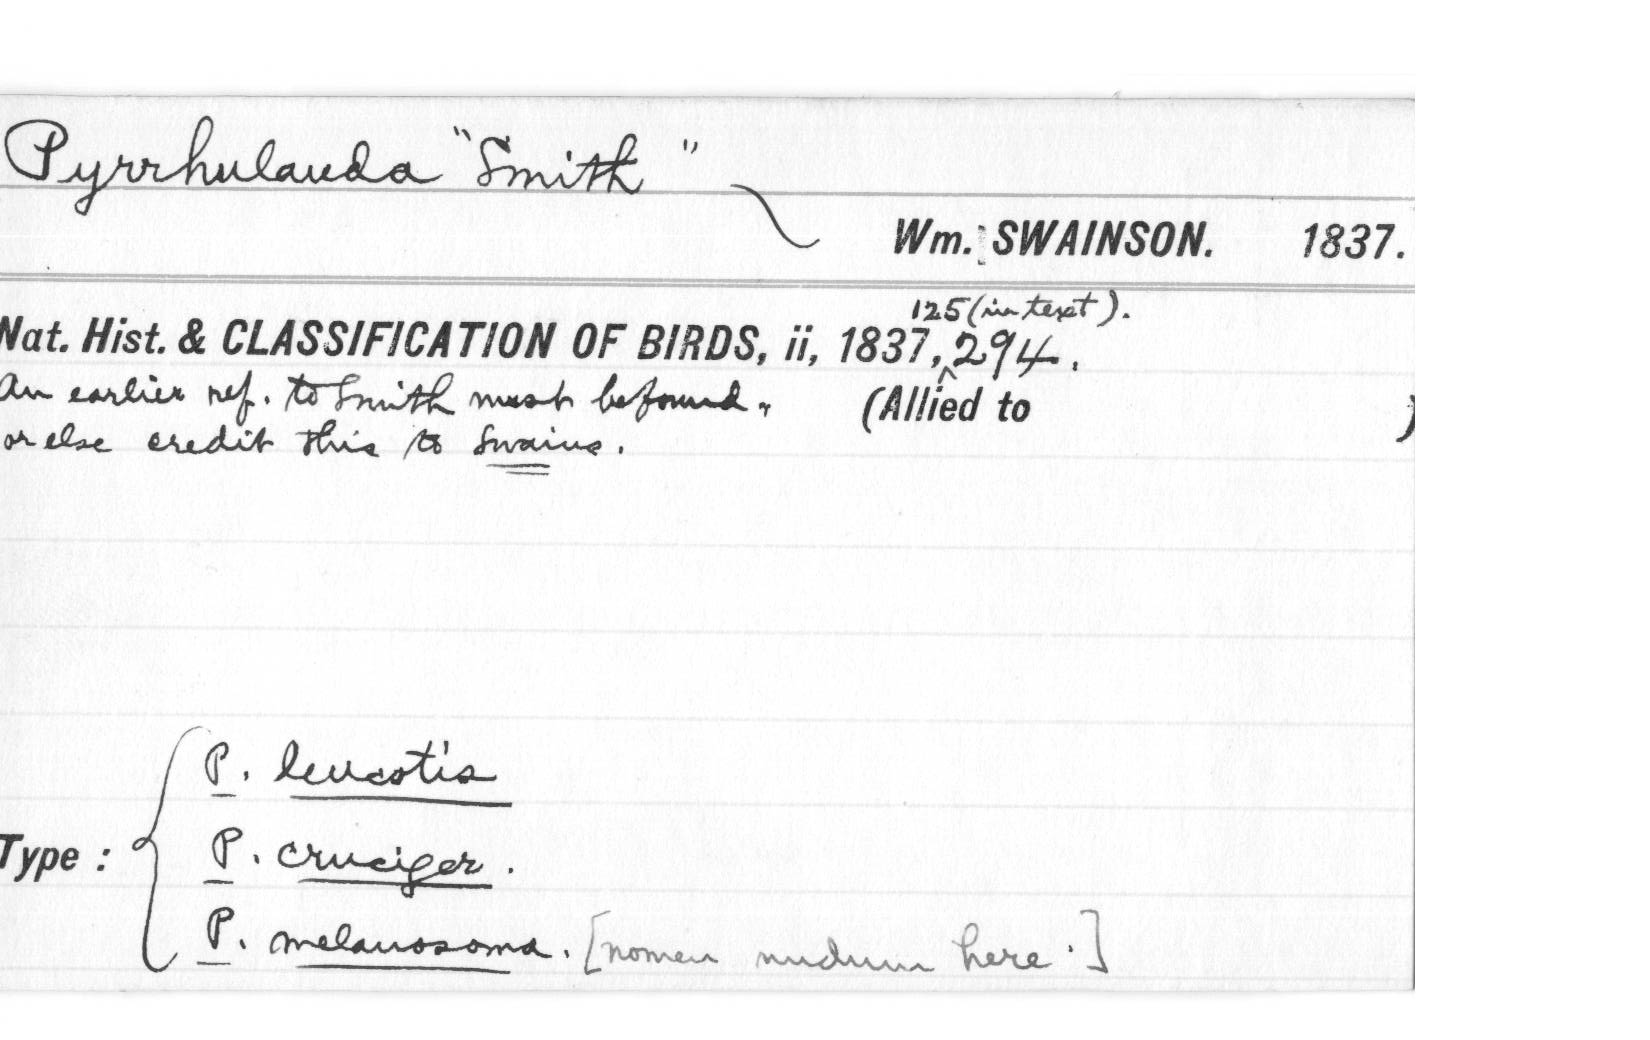 Pyrrhulauda "Smith"
Wm. SWAINSON. 1837.
125 (in text).
Nat. Hist. & CLASSIFICATION OF BIRDS, ii, 1837, ^ 294.
An earlier ref. to Smith must be found,
(Allied to )
or else credit this to Swains.
P. leucotis
Type : P. cruciger.
P. melanosoma. [nomen nudum here.]